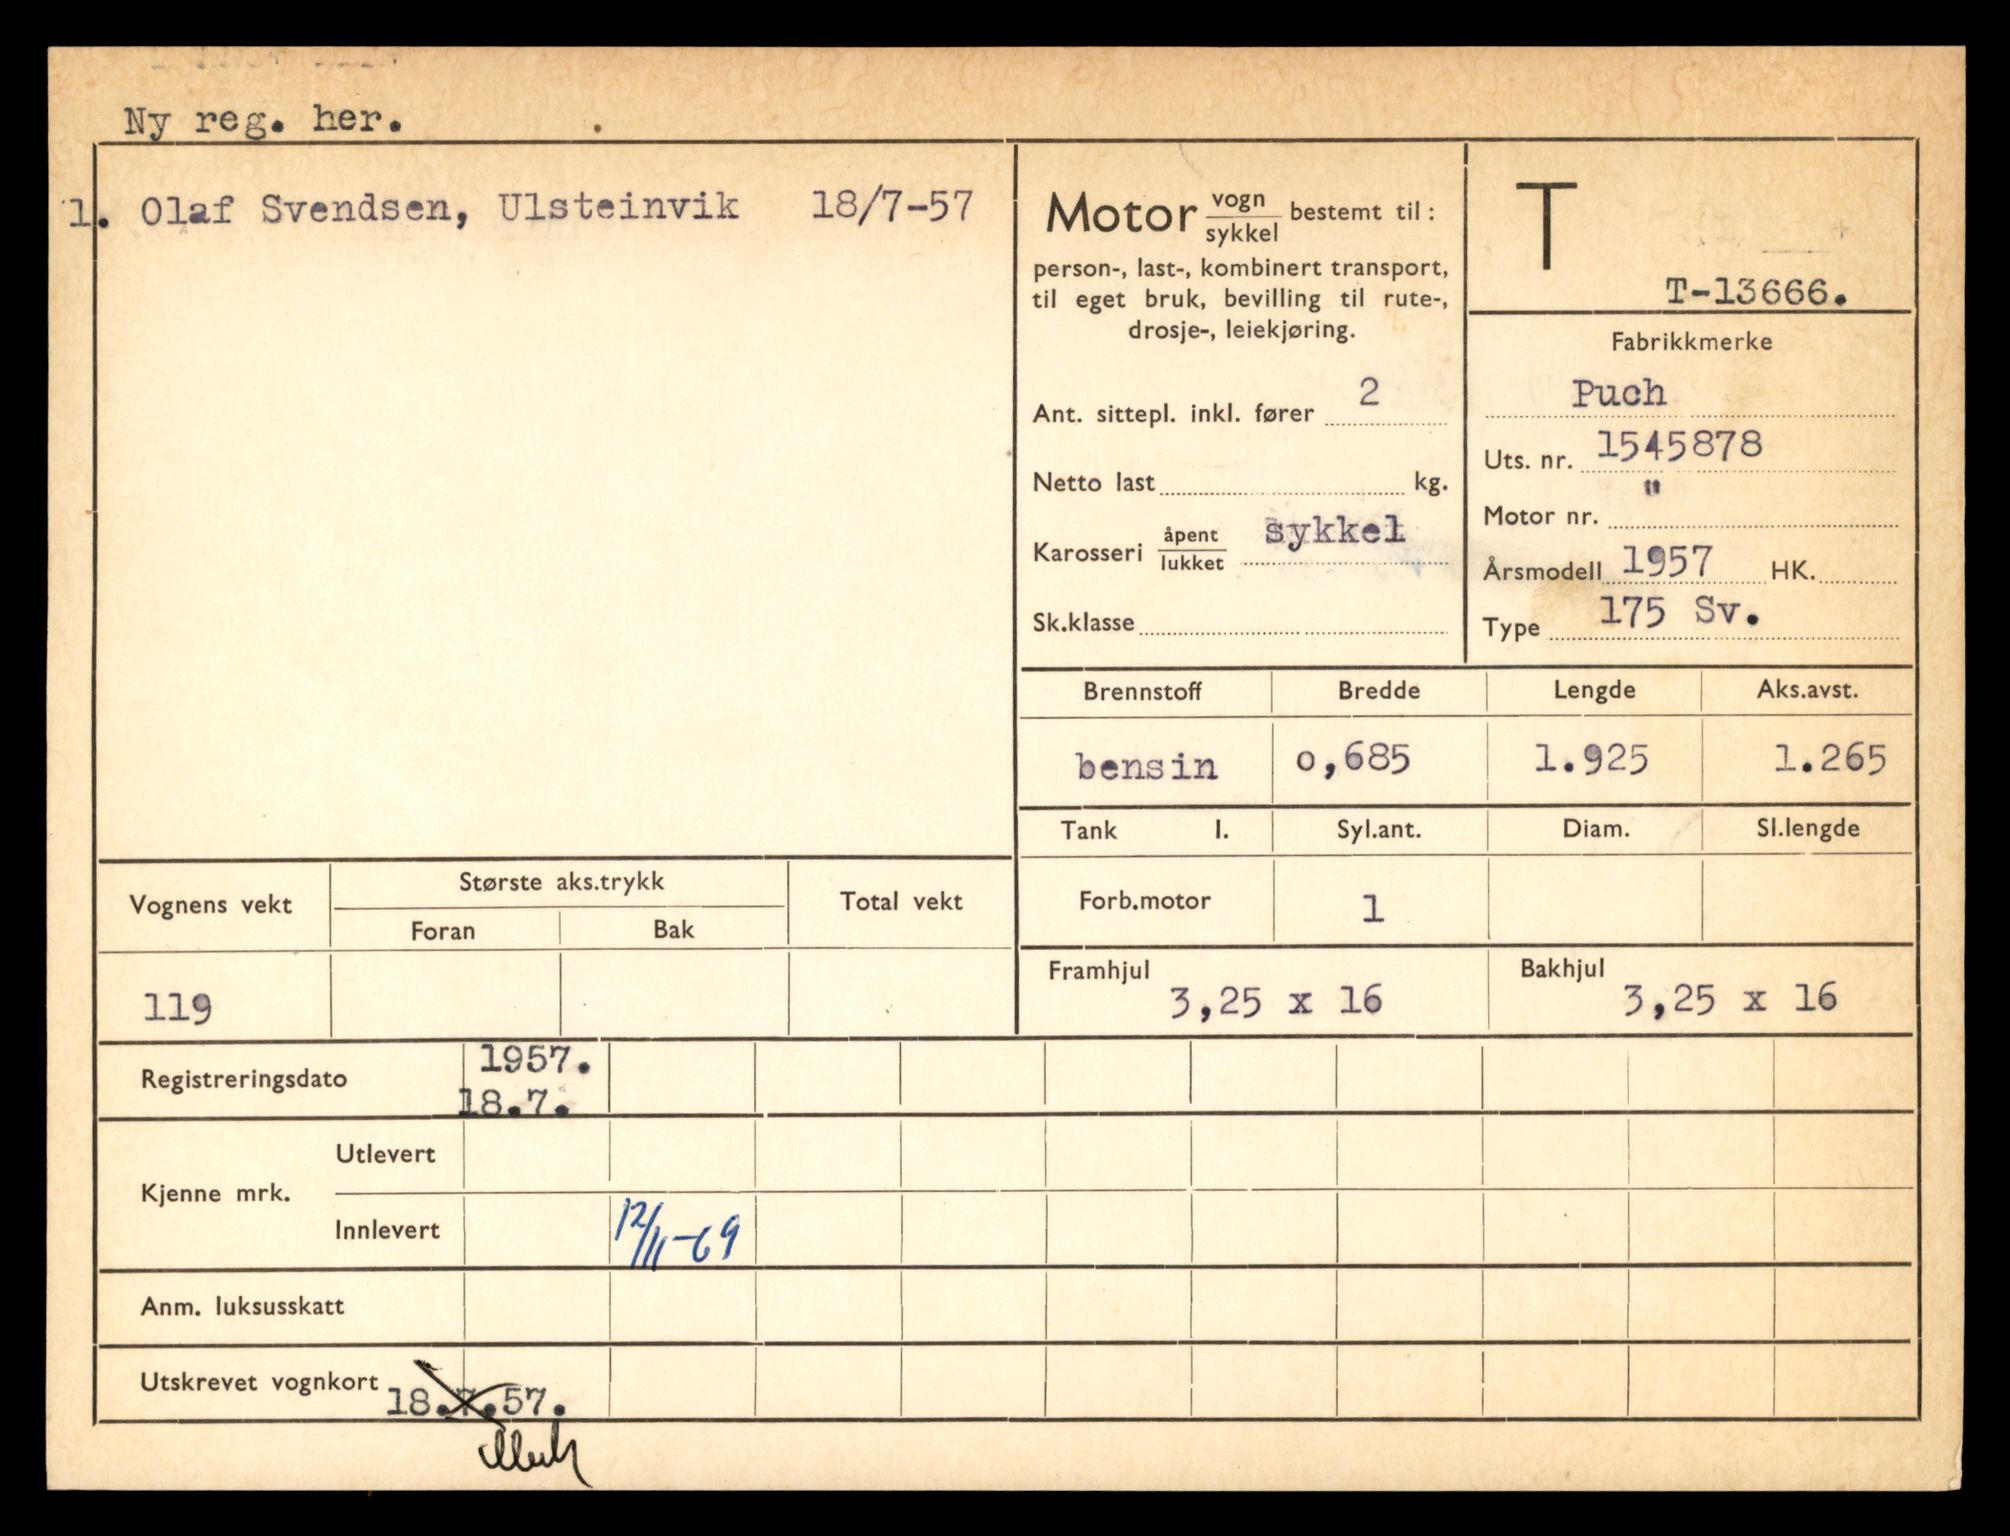 Ny reg. her.
1. Olaf Svendsen, Ulsteinvik 18/7-57
Motor vogn/sykkel bestemt til:
person-, last-, kombinert transport,
til eget bruk, bevilling til rute-,
drosje-, leiekjøring.
Ant. sittepl. inkl. fører 2
Netto last kg.
Karosseri åpent/lukket sykkel
Sk.klasse
T
T-13666.
Fabrikkmerke
Puch
Uts. nr. 1545878
Motor nr. "
Årsmodell 1957 HK.
Type 175 Sv.
Brennstoff Bredde Lengde Aks.avst.
bensin 0,685 1.925 1.265
Tank l. Syl.ant. Diam. Sl.lengde
Forb.motor 1
Framhjul 3,25 x 16 Bakhjul 3,25 x 16
Vognens vekt Største aks.trykk Total vekt
Foran Bak
119
Registreringsdato 1957.
18.7.
Kjenne mrk. Utlevert
Innlevert 12/11-69
Anm. luksusskatt
Utskrevet vognkort 18.7.57.